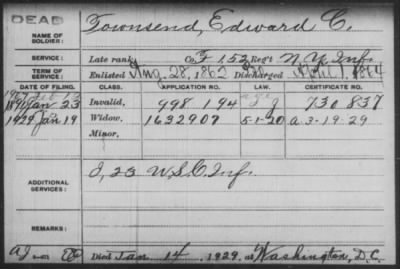 DEAD
NAME OF SOLDIER: Townsend, Edward C.
SERVICE: Late rank, Co. F 152 Regt N.Y. Inf.
TERM OF SERVICE: Enlisted Aug. 28, 1862 Discharged 1, 1864
DATE OF FILING. CLASS. APPLICATION NO. LAW. CERTIFICATE NO.
1891 Jan 23 Invalid, 998 194 730 837
1929 Jan 19 Widow, 1632907 5-1-20 a. 3-19-29
Minor,
ADDITIONAL SERVICES: I, 23 U.S.C. Inf.
REMARKS:
Died Jan 14, 1929, at Washington, D.C.